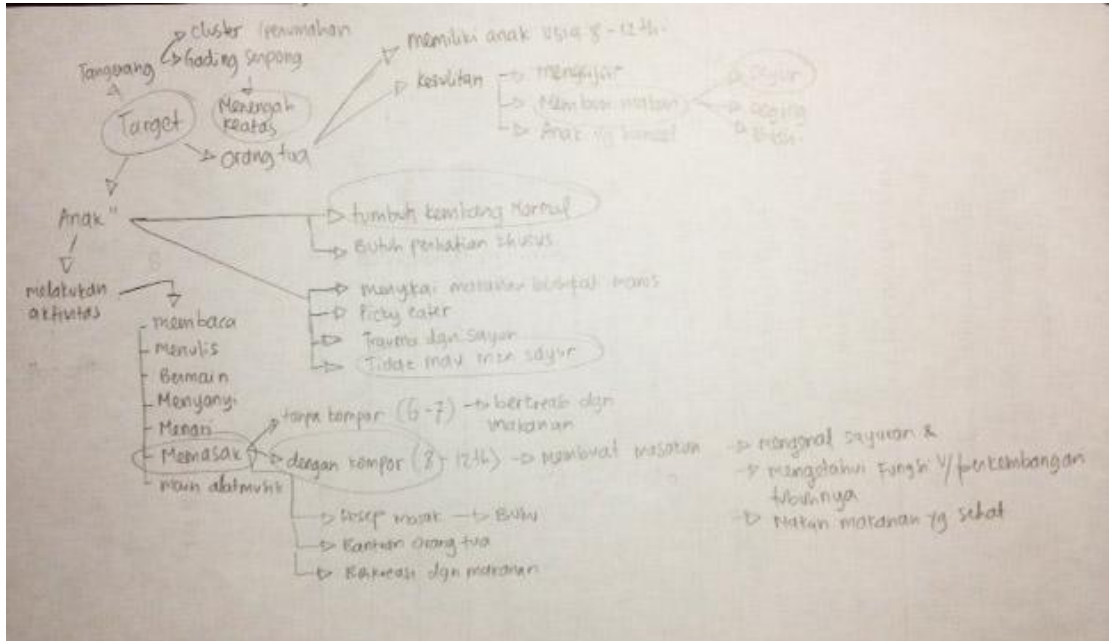 cluster /perumahan
Gading Serpong
Tangerang
Menengah
keatas
Target
orang tua
memiliki anak usia 8-12 th.
kesulitan
mengajar
Sayur
Daging
Anak yg
Anak"
tumbuh kembang normal
Butuh perhatian khusus
makanan manis
Picky eater
Trauma dgn sayur
Tidak mau mkn sayur
melakukan
aktivitas
membaca
Menulis
Bermain
Menyanyi
Menari
Memasak
main alat musik
tanpa kompor (6-7)
berkreasi dgn
makanan
dengan kompor (8-12th)
membuat masakan
mengenal sayuran &
mengetahui fungsi u/ perkembangan
tubuhnya
Makan makanan yg sehat
Resep masak
Buku
Bantuan orang tua
Berkreasi dgn makanan